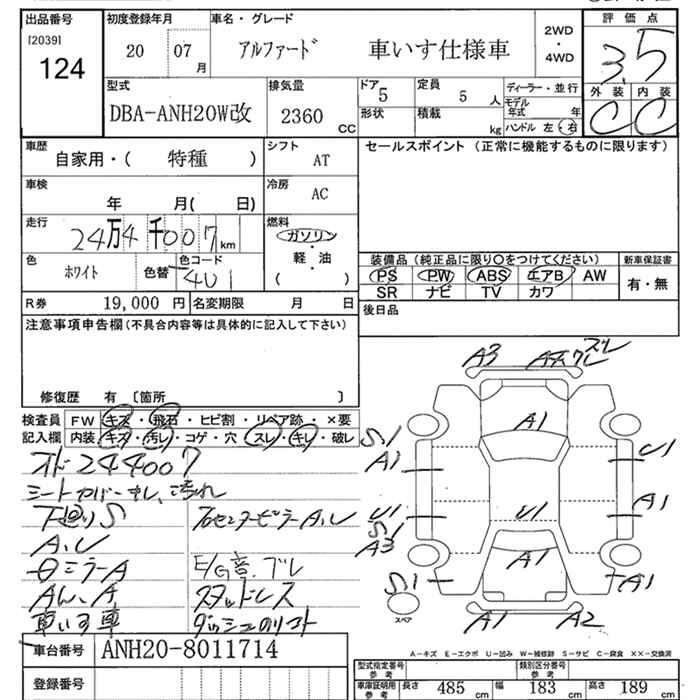 出品番号 初度登録年月 車名・グレード 2WD・4WD 評価点
[2039]
124 20 07月 アルファード 車いす仕様車 3.5
外装 内装
C C
型式 排気量 ドア 5 定員 5人 ディーラー・並行
DBA-ANH20W改 2360cc 形状 積載 kg モデル年式 年
ハンドル 左・右
車歴 シフト セールスポイント (正常に機能するものに限ります)
自家用・( 特種 ) AT
車検 冷房
年 月( 日) AC
走行 燃料
24万4千007km ガソリン・軽・油( )
色 色コード 装備品(純正品に限り○をつけてください) 新車保証書
ホワイト 色替 4U1 PS PW ABS エアB AW 有・無
SR ナビ TV カワ
R券 19,000円 名変期限 月 日 後日品
注意事項申告欄(不具合内容等は具体的に記入して下さい)
修復歴 有 〔箇所 〕
検査員 FW キズ・飛石・ヒビ割・リペア跡・×要
記入欄 内装 キズ・汚レ・コゲ・穴 スレ・キレ・破レ
オド244007
シートカバーキレ、汚れ
下廻りS
A.U
ミラーA
E/G音.ブレ
スタッドレス
車いす車 ダッシュのリフト
A3 A
A1
S1
A1 U1
U1 U1 A1
S1
A3
A1
S1 A1
スペア
A1 A2
A-キズ E-エクボ U-凹み W-補修跡 S-サビ C-腐食 ××-交換済
車台番号 ANH20-8011714
登録番号
型式指定番号 参考 類別区分番号 参考
車庫証明用 参考 長さ 485cm 幅 183cm 高さ 189cm